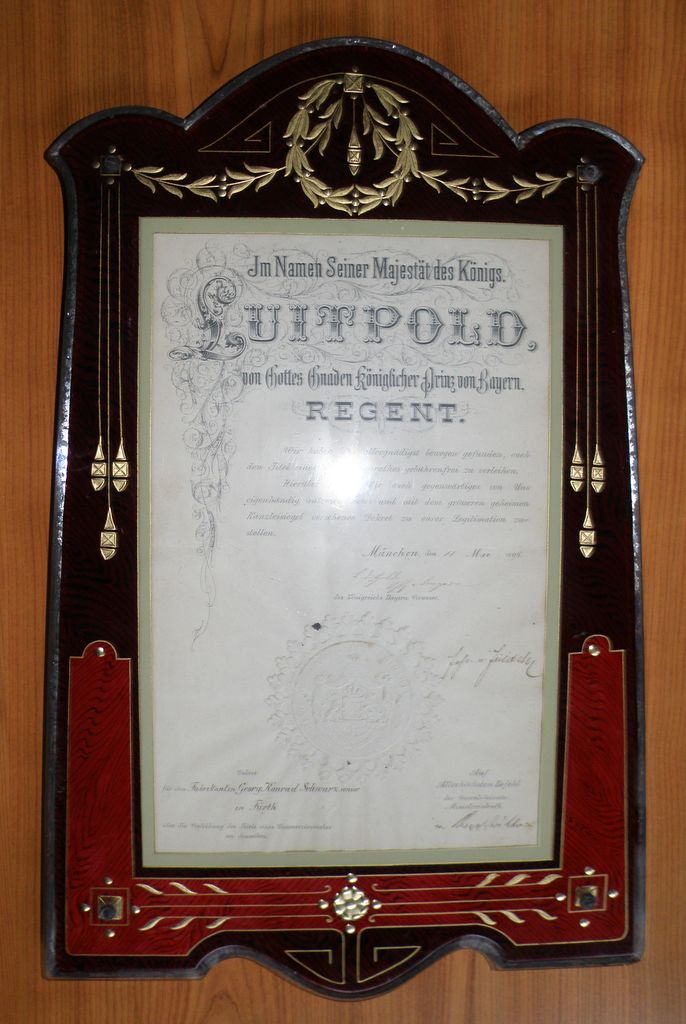 Im Namen Seiner Majestät des Königs.
LUITPOLD,
von Gottes Gnaden Königlicher Prinz von Bayern.
REGENT.
Wir haben allergnädigst bewogen gefunden, euch
den Titel eines rathes gebührenfrei zu verleihen.
Hierüber Wir euch gegenwärtiges von Uns
eigenhändig und mit dem grösseren geheimen
Kanzleisiegel versehenes Dekret zu eurer Legitimation zu-
stellen.
München, den
des Königreichs Bayern Verweser.
Dekret
für den Fabrikanten Georg Konrad Schwarz senior
in Fürth
Auf
Allerhöchsten Befehl
der
Ministerialrath